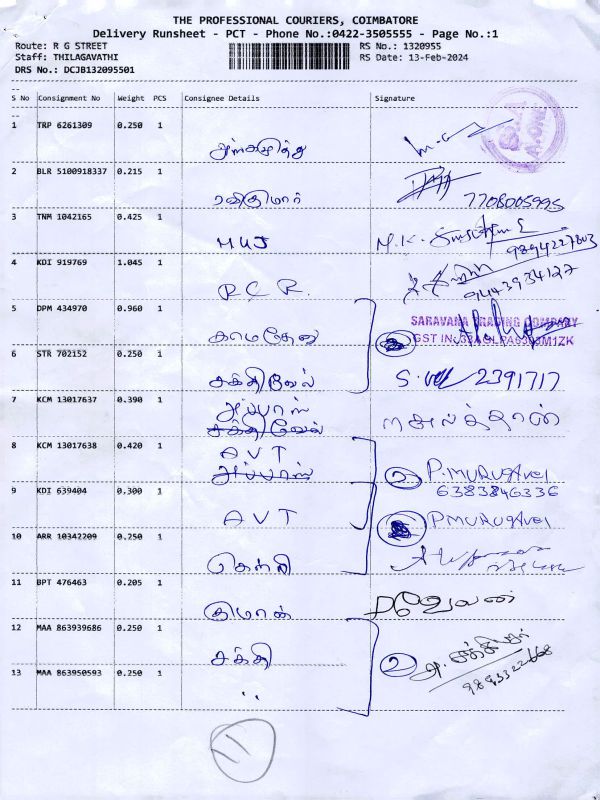 THE PROFESSIONAL COURIERS, COIMBATORE
Delivery Runsheet - PCT - Phone No.:0422-3505555 - Page No.:1
Route: R G STREET RS No.: 1320955
Staff: THILAGAVATHI RS Date: 13-Feb-2024
DRS No.: DCJB132095501
S No Consignment No Weight PCS Consignee Details Signature
1 TRP 6261309 0.250 1
2 BLR 5100918337 0.215 1 ரவிகுமார்
7708005995
3 TNM 1042165 0.425 1 MUJ M.K.
9894227803
4 KDI 919769 1.045 1 R.C.R.
9443934127
5 DPM 434970 0.960 1 காமதேனு SARAVANA TRADING COMPANY
GST IN:
6 STR 702152 0.250 1 சக்திவேல் 2391717
7 KCM 13017637 0.390 1 அப்பாஸ்
சக்திவேல்
8 KCM 13017638 0.420 1 AVT 2 P.MURUGAVEL
அப்பாஸ் 6383846336
9 KDI 639404 0.300 1 AVT PMURUGAVEL
10 ARR 10342209 0.250 1 வெற்றி
11 BPT 476463 0.205 1 குமரன்
12 MAA 863939686 0.250 1 சக்தி 2
13 MAA 863950593 0.250 1 ,,
11